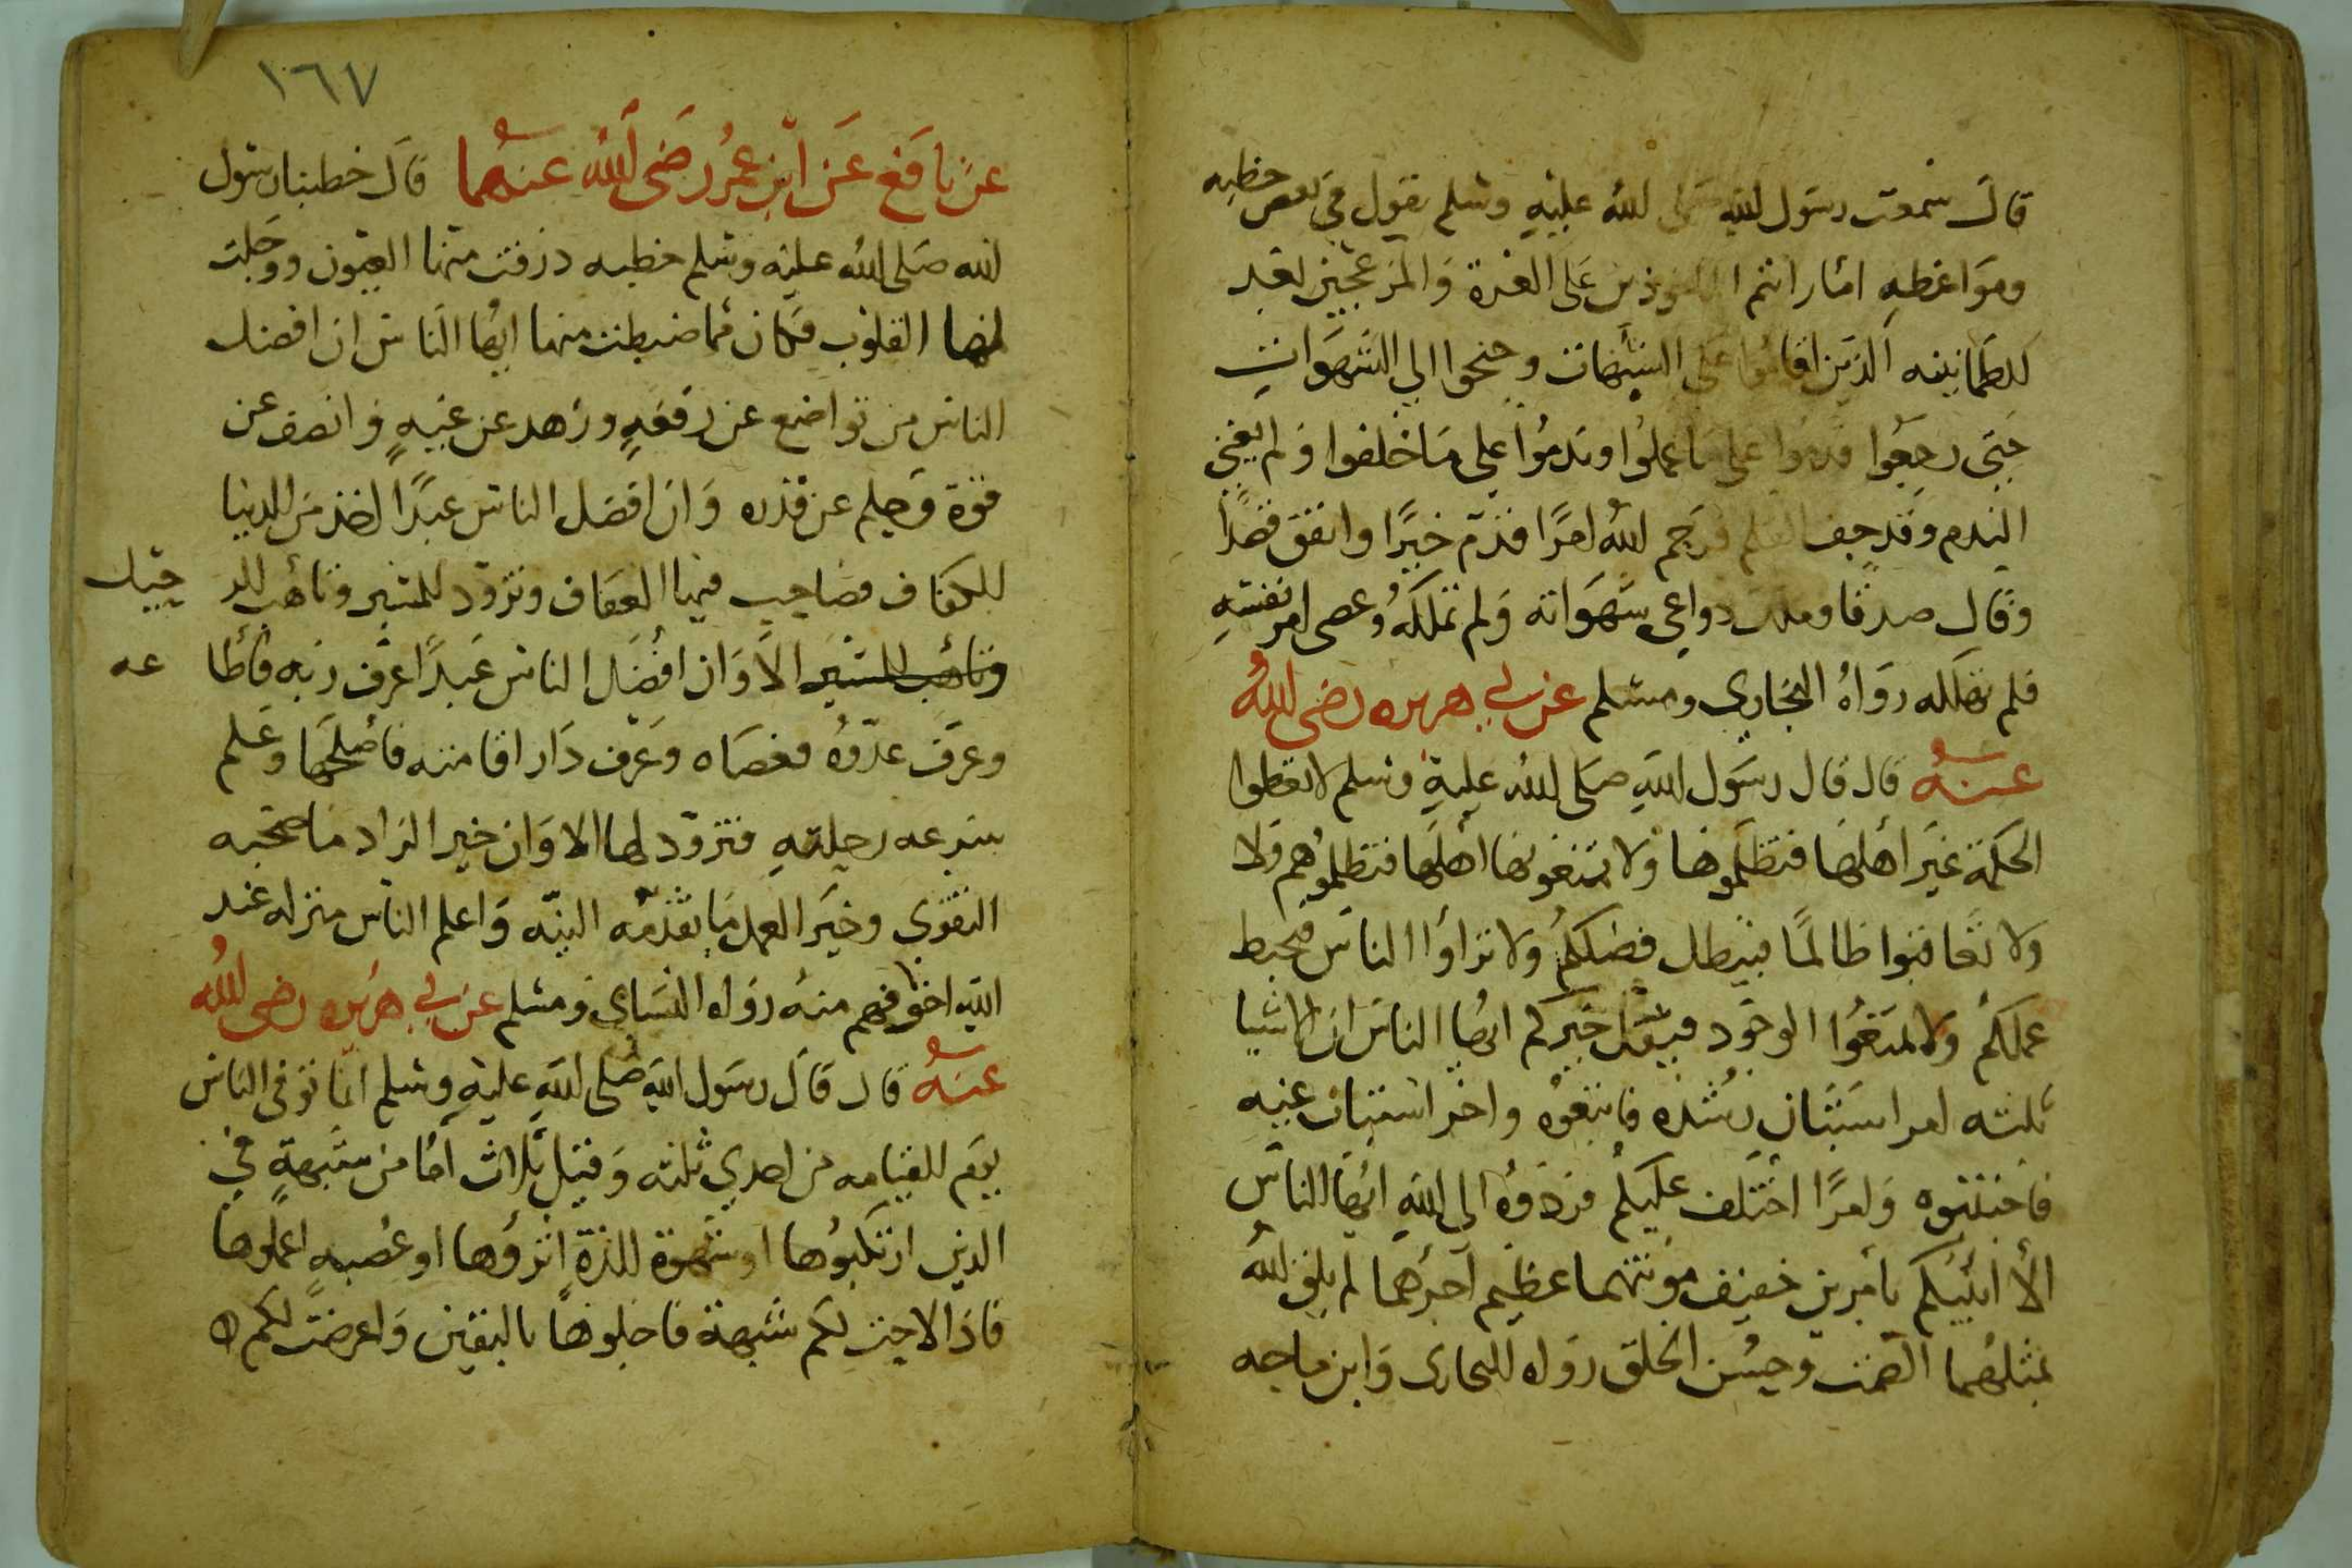 قال سمعت رسول الله صلى الله عليه وسلم يقول في بعض خطبه
ومواعظه اما رايتم الماخوذين على الغرة والمزعجين بعد
الطمانينه الذين اقاموا على الشبهات وجنحوا الى الشهوات
حتى رجعوا قدموا على ما عملوا وندموا على ما خلفوا ولم يغن
الندم وقد جف القلم فرحم الله امرًا قدم خيرًا وانفق قصدًا
وقال صدقا وملك دواعي شهواته ولم تملكه وعصى امر نفسه
فلم تهلكه رواه البخاري ومسلم عن ابي هريره رضي الله
عنه قال قال رسول الله صلى الله عليه وسلم لا تعطوا
الحكمة غير اهلها فتظلموها ولا تمنعونها اهلها فتظلموهم ولا
ولا تعاقبوا ظالمًا فيبطل فضلكم ولا تراؤا الناس فيحبط
عملكم ولا تمنعوا الوجود فيقل خيركم ايها الناس ان الاشيا
ثلثه امر استبان رشده فاتبعوه وامر استبان غيه
فاجتنبوه وامرًا اختلف عليكم فردوه الى الله ايها الناس
الا انبئكم بامرين خفيف مونتهما عظيم اجرهما لم يلق الله
بمثلهما الصمت وحسن الخلق رواه البخارى وابن ماجه
١٦٧
عن نافع عن ابن عمر رضي الله عنهما قال خطبنا رسول
الله صلى الله عليه وسلم خطبه ذرفت منها العيون ووجلت
لها القلوب فكان مما ضبطت منها ايها الناس ان افضل
الناس من تواضع عن رفعةٍ وزهد عن غنيهٍ وانصف عن
قوة وحلم عن قدره وان افضل الناس عبدًا اخذ من الدنيا
الكفاف وصاحب فيها العفاف وتزود للمسير وتاهب للر حيل
وتاهب للمسير الا وان افضل الناس عبدًا عرف ربه فاطا عه
وعرف عدوه فعصاه وعرف دار اقامته فاصلحها وعلم
سرعه رحلته فتزود لها الا وان خير الزاد ما صحبه
التقوى وخير العمل ما تقدمه النيه واعلم الناس منزله عند
الله اخوفهم منه رواه النساي ومسلم عن ابي هريره رضي الله
عنه قال قال رسول الله صلى الله عليه وسلم انما توفى الناس
يوم القيامه من احدي ثلثه وقيل ثلاث اما من شبهةٍ في
الدين ارتكبوها او شهوة للذة اثروها او غضبه اعملوها
فاذا لاحت لكم شبهة فاجلوها باليقين واعرضت لكم